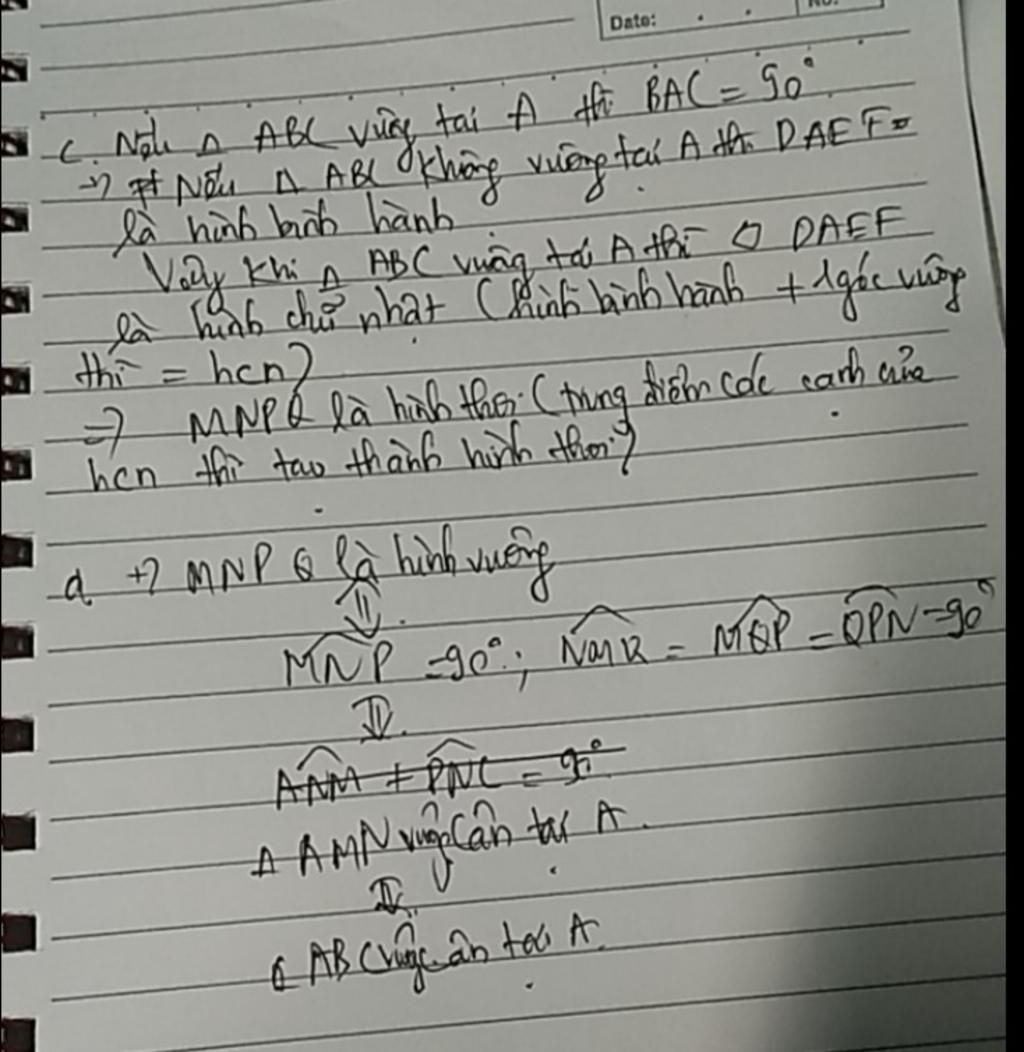 Date:
No:
c. Nếu Δ ABC vuông tại A thì BAC = 90°
→ Nếu Δ ABC không vuông tại A thì DAEF
là hình bình hành
Vậy khi Δ ABC vuông tại A thì ◇ DAEF
là hình chữ nhật (hình bình hành + 1 góc vuông
thì = hcn)
=> MNPQ là hình thoi (trung điểm các cạnh của
hcn thì tạo thành hình thoi)
d +) MNPQ là hình vuông
⇕
MNP = 90°; NMQ = MQP = QPN = 90°
⇓
ANM + PNC = 90°
Δ AMN vuông cân tại A.
⇓
Δ ABC vuông cân tại A.